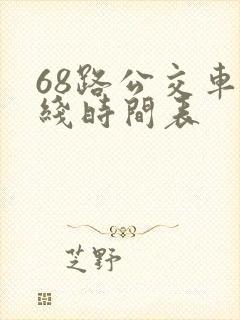 68路公交车
綫時間表
芝野